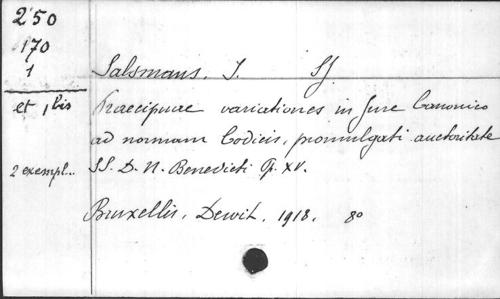 250
170
1
et 1 bis
2 exempl..
Salsmans, J. SJ.
Praecipuae variationes in Jure Canonico
ad normam Codicis, promulgati auctoritate
SS. D. N. Benedicti P. XV.
Bruxellis, Dewit, 1918. 8o